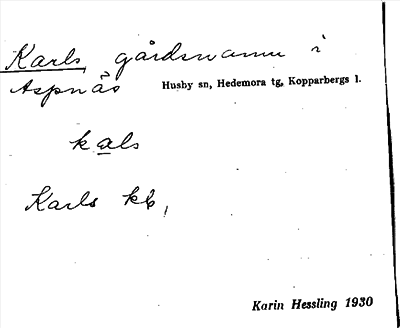 Karls, gårdsnamn i
Aspnäs
Husby sn, Hedemora tg, Kopparbergs l.
kals
Karls kb,
Karin Hessling 1930